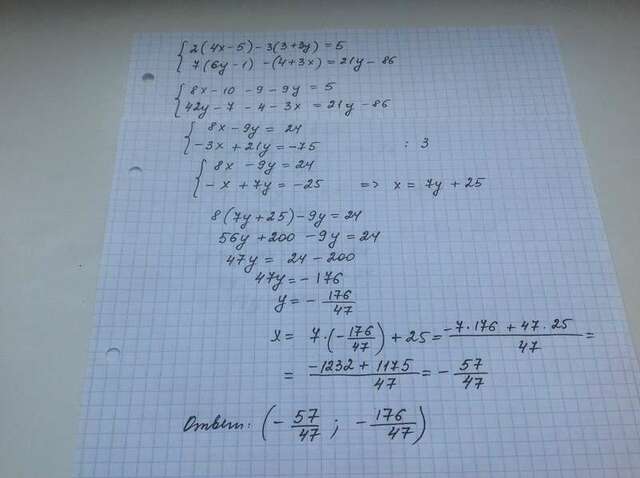 { 2(4x-5)-3(3+3y)=5
7(6y-1) -(4+3x)=21y-86
{ 8x-10-9-9y=5
42y-7-4-3x=21y-86
{ 8x-9y=24
-3x+21y=-75 :3
{ 8x-9y=24
-x+7y=-25 => x=7y+25
8(7y+25)-9y=24
56y+200-9y=24
47y=24-200
47y=-176
y=-176/47
x=7·(-176/47)+25=(-7·176+47·25)/47=
=(-1232+1175)/47=-57/47
Ответ: (-57/47; -176/47)